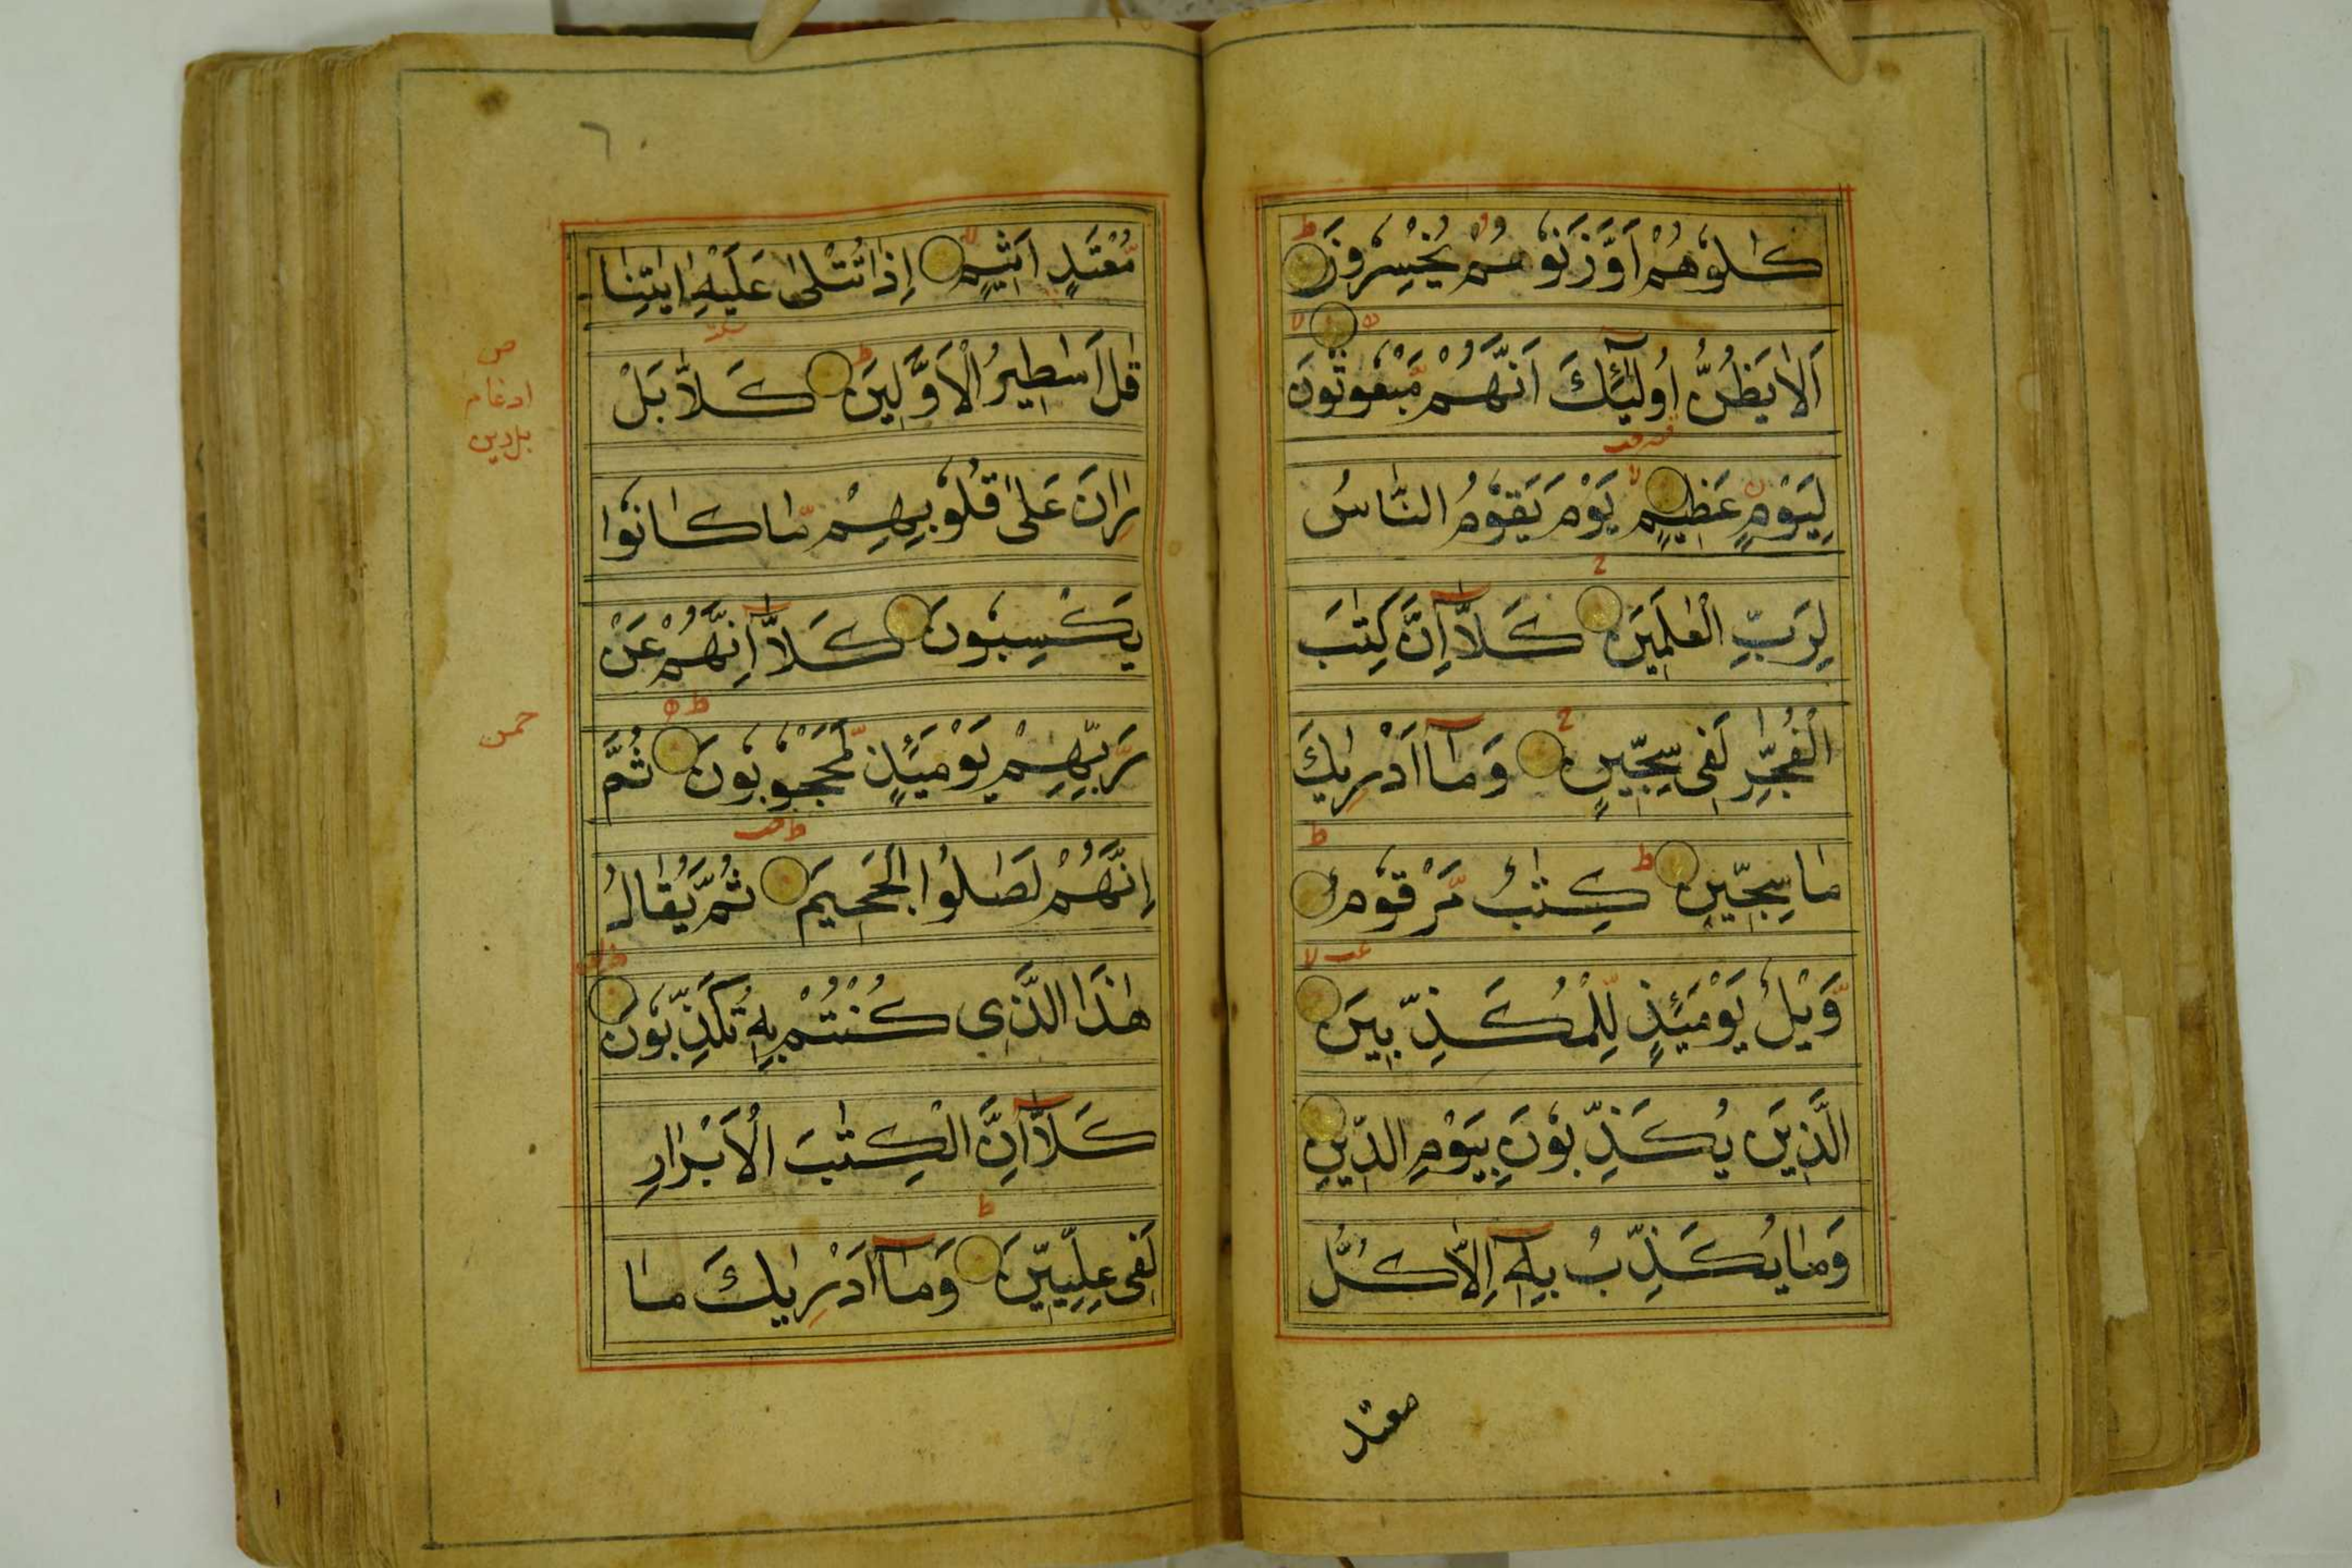 كَالُوهُمْ اَوْ وَّزَنُوهُمْ يُخْسِرُونَ
اَلَا يَظُنُّ اُولٰٓئِكَ اَنَّهُمْ مَّبْعُوْثُونَ
لِيَوْمٍ عَظِيْمٍ يَوْمَ يَقُوْمُ النَّاسُ
لِرَبِّ الْعٰلَمِيْنَ كَلَّآ اِنَّ كِتٰبَ
الْفُجَّارِ لَفِى سِجِّيْنٍ وَمَآ اَدْرٰىكَ
مَا سِجِّيْنٌ كِتٰبٌ مَّرْقُوْمٌ
وَّيْلٌ يَوْمَئِذٍ لِّلْمُكَذِّبِيْنَ
الَّذِيْنَ يُكَذِّبُوْنَ بِيَوْمِ الدِّيْنِ
وَمَا يُكَذِّبُ بِهٖٓ اِلَّا كُلُّ
معتد
مُعْتَدٍ اَثِيْمٍ اِذَا تُتْلٰى عَلَيْهِ اٰيٰتُنَا
قَالَ اَسَاطِيْرُ الْاَوَّلِيْنَ كَلَّا بَلْ
رَانَ عَلٰى قُلُوْبِهِمْ مَّا كَانُوْا
يَكْسِبُوْنَ كَلَّآ اِنَّهُمْ عَنْ
رَّبِّهِمْ يَوْمَئِذٍ لَّمَحْجُوْبُوْنَ ثُمَّ
اِنَّهُمْ لَصَالُوا الْجَحِيْمَ ثُمَّ يُقَالُ
هٰذَا الَّذِى كُنْتُمْ بِهٖ تُكَذِّبُوْنَ
كَلَّآ اِنَّ الْكِتٰبَ الْاَبْرَارِ
لَفِى عِلِّيِّيْنَ وَمَآ اَدْرٰىكَ مَا
ادغام